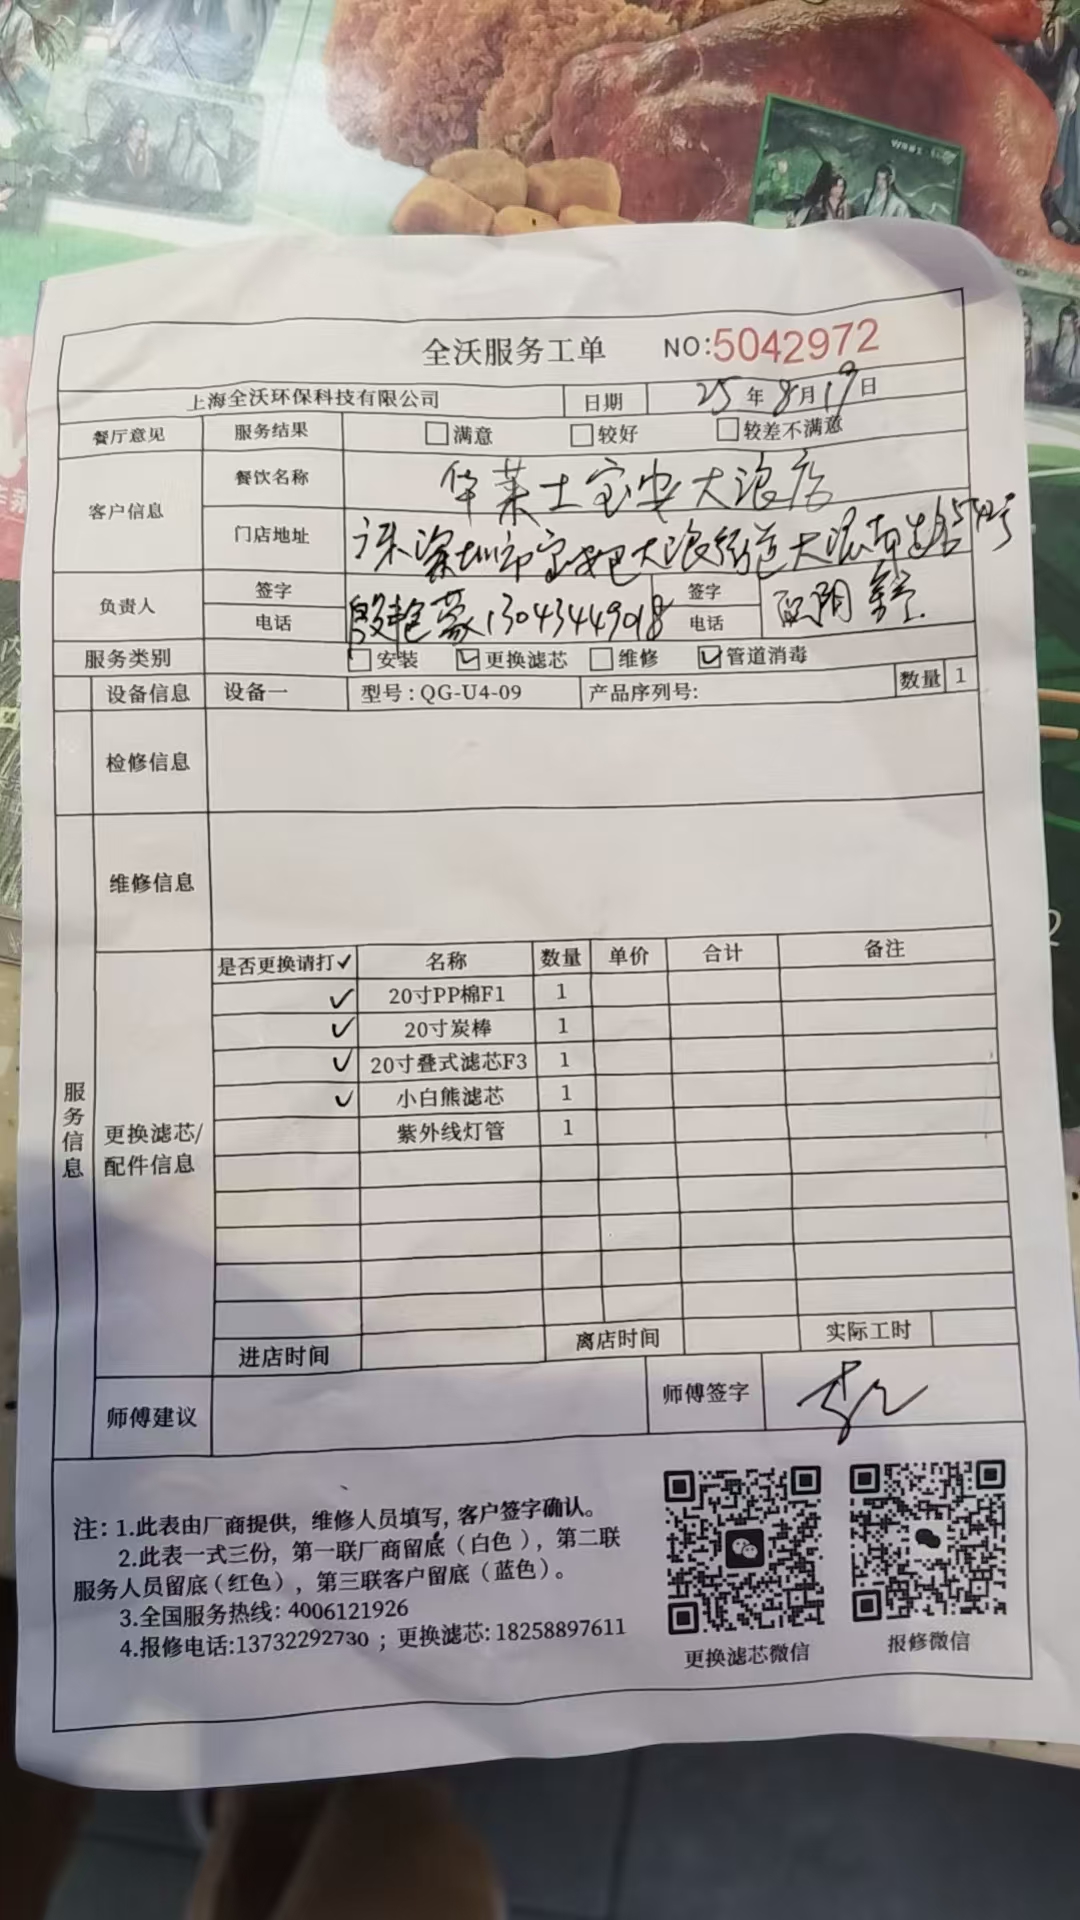 全沃服务工单 NO:5042972
上海全沃环保科技有限公司 日期 25年8月19日
餐厅意见 服务结果 满意 较好 较差不满意
客户信息 餐饮名称 华莱士宝安大浪店
门店地址 深圳市宝安区大浪街道大浪南路
负责人 签字 签字
电话 13043449018 电话 欧阳
服务类别 安装 更换滤芯 维修 管道消毒
设备信息 设备一 型号:QG-U4-09 产品序列号: 数量 1
检修信息
维修信息
是否更换请打✓ 名称 数量 单价 合计 备注
✓ 20寸PP棉F1 1
✓ 20寸炭棒 1
✓ 20寸叠式滤芯F3 1
✓ 小白熊滤芯 1
紫外线灯管 1
服务信息
更换滤芯/
配件信息
进店时间 离店时间 实际工时
师傅建议 师傅签字
注:1.此表由厂商提供,维修人员填写,客户签字确认。
2.此表一式三份,第一联厂商留底(白色),第二联
服务人员留底(红色),第三联客户留底(蓝色)。
3.全国服务热线:4006121926
4.报修电话:13732292730;更换滤芯:18258897611
更换滤芯微信 报修微信